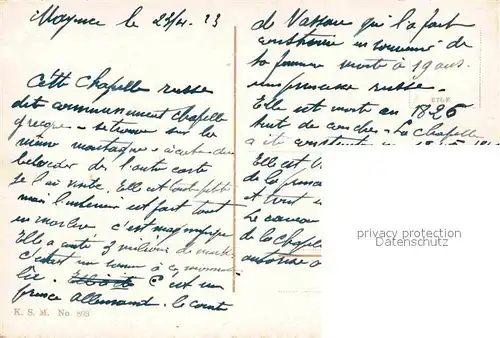 Mayence le 23/4. 23
Cette chapelle russe
dit communement chapelle
grecque - se trouve sur la
même montagne - à côté du
belvéder de l'autre carte
je l'ai visité. Elle est toute petite
mais l'intérieur est fait tout
en marbre c'est magnifique
Elle a coûté 3 millions de marks
c'était une somme à ce moment
là. C'est un
prince Allemand. le comte
K. S. M. No. 893
de Nassau qui l'a fait
construire en souvenir de
sa femme morte à 19 ans.
une princesse russe -
Elle est morte en 1825
La chapelle
a été construite en
Elle est
de la prin
et tout
Le caveau
de la chapelle
autorisé a
privates Ansichtskartenarchiv